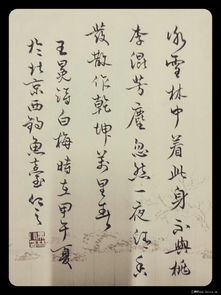 冰雪林中着此身不與桃
李混芳塵忽然一夜清香
發散作乾坤萬里春
王冕詩白梅時在甲午夏
於北京西釣魚臺